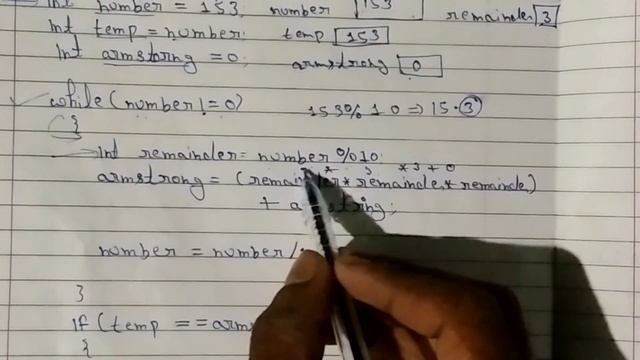 int number = 153; number 153 remainder 3
int temp = number; temp 153
int armstrong = 0; armstrong 0
while (number != 0) 153 % 10 => 15.3
{
int remainder = number % 10;
* 3 * 3 + 0
armstrong = (remainder * remainder * remainder)
+ armstring;
number = number /
}
if (temp == arms
{